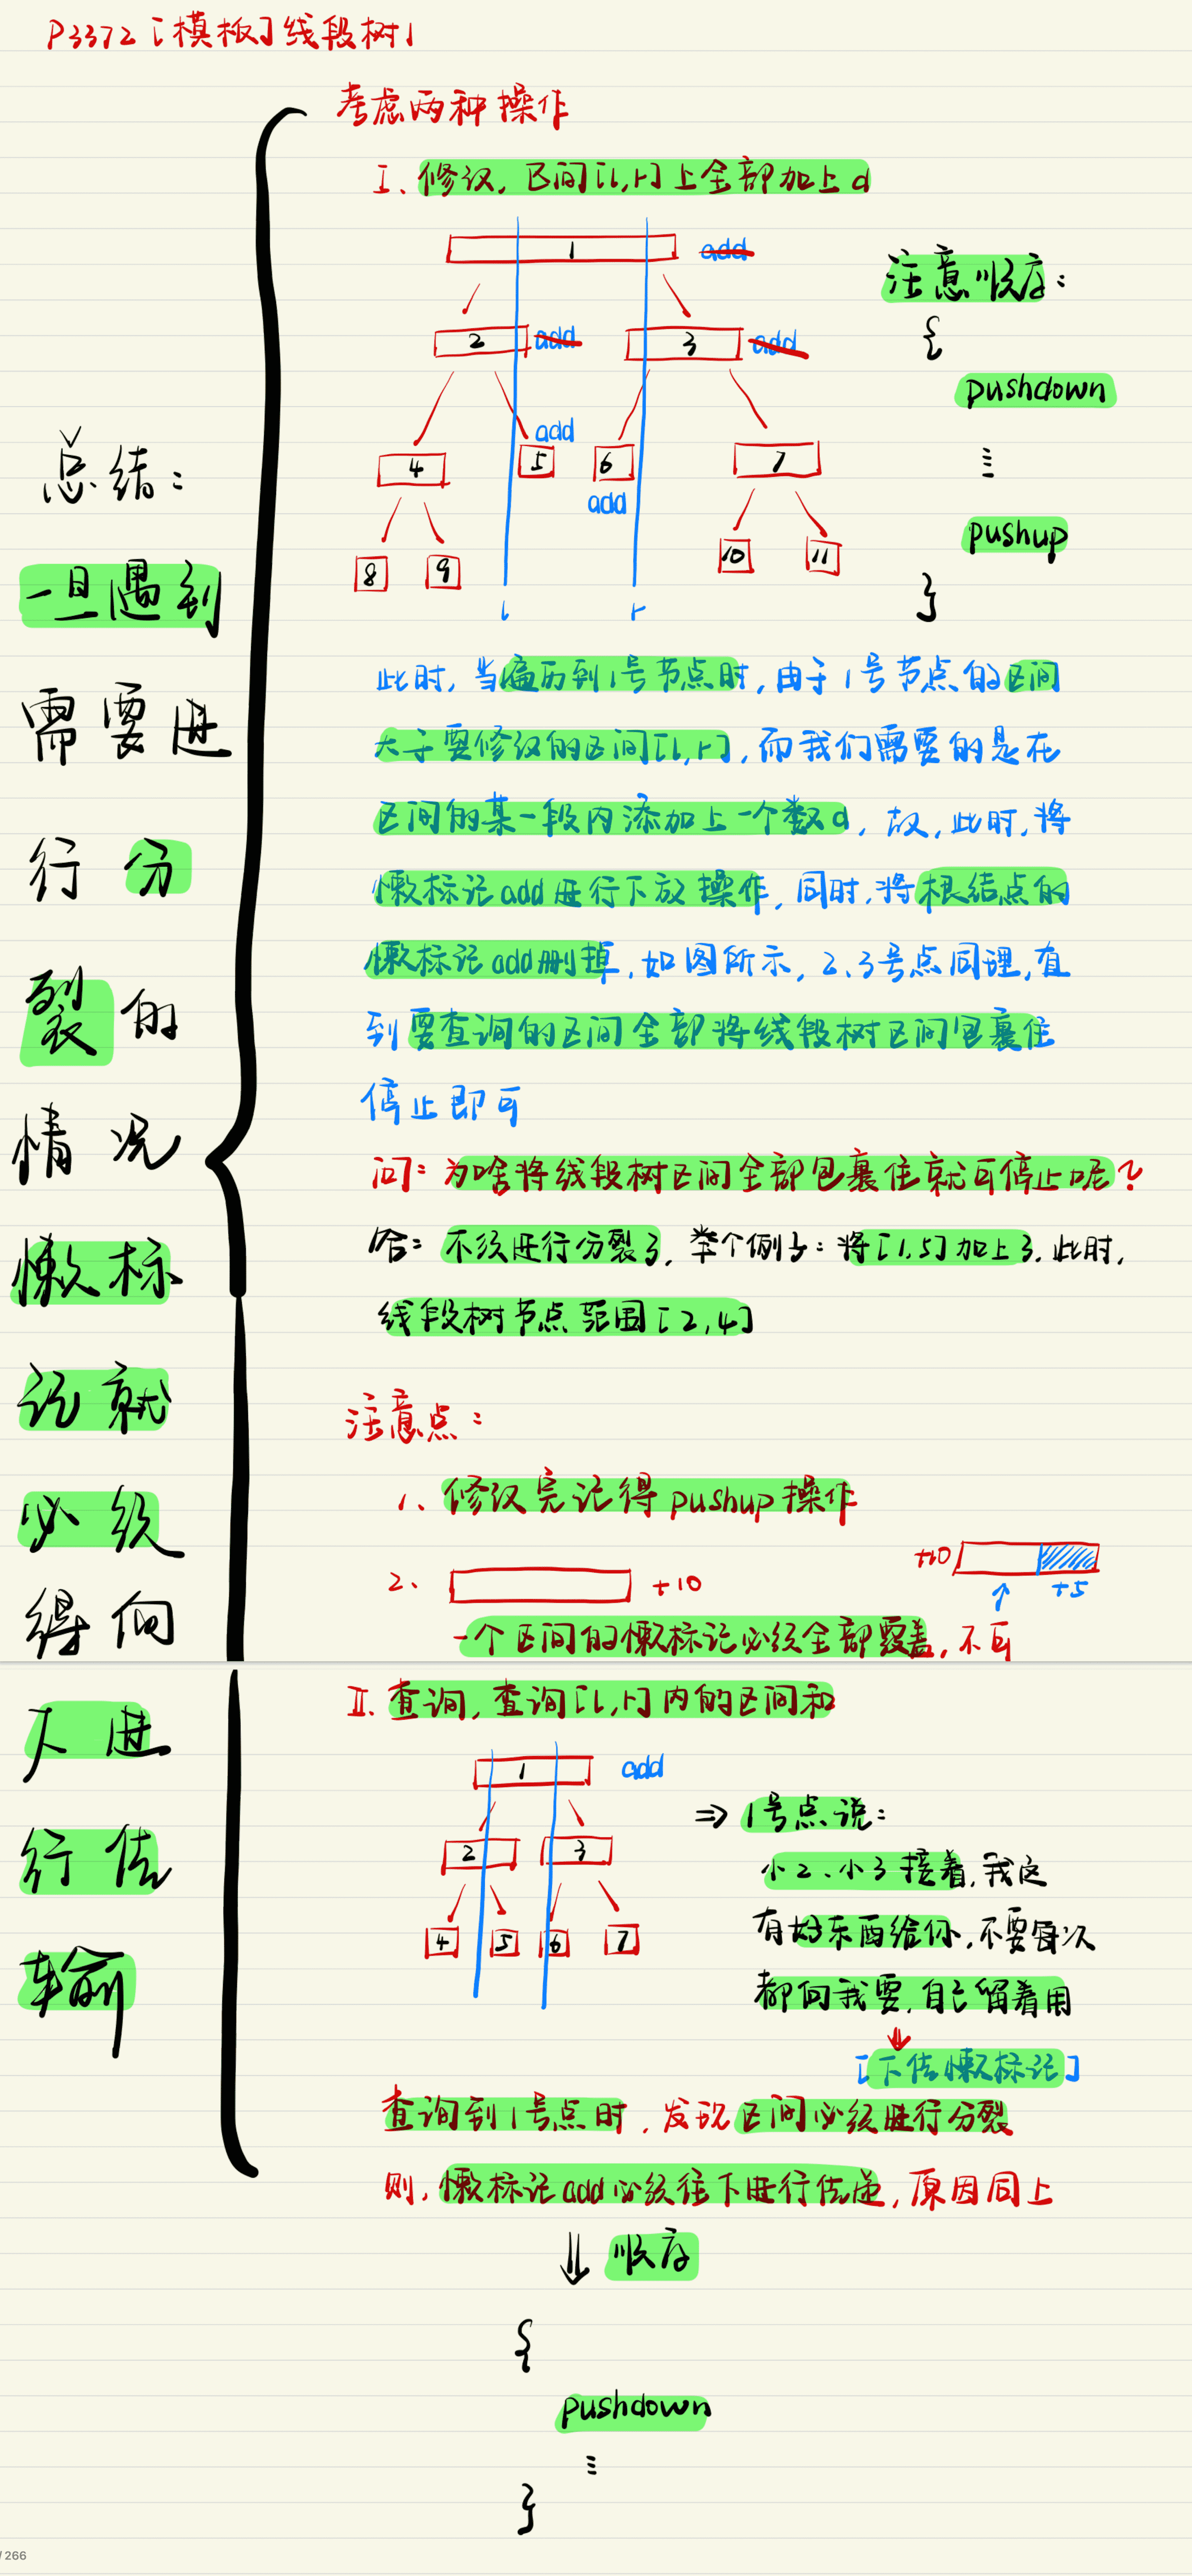 P3372 [模板]线段树1
考虑两种操作
I、修改, 区间[l,r]上全部加上d
1 add
2 add 3 add
4 add 5 6 7
add
8 9 10 11
l r
注意顺序:
{
pushdown
⋮
pushup
}
此时, 当遍历到1号节点时, 由于1号节点的区间
大于要修改的区间[l,r], 而我们需要的是在
区间的某一段内添加上一个数d, 故, 此时, 将
懒标记add进行下放操作, 同时, 将根结点的
懒标记add删掉, 如图所示, 2、3号点同理, 直
到要查询的区间全部将线段树区间包裹住
停止即可
问: 为啥将线段树区间全部包裹住就可停止呢?
答: 不须进行分裂了, 举个例子: 将[1,5]加上3, 此时,
线段树节点范围[2,4]
注意点:
1、修改完记得pushup操作
2、 +10
+10 ↑ +5
一个区间的懒标记必须全部覆盖, 不可
总结:
一旦遇到
需要进
行分
裂的
情况
懒标
记就
必须
得向
下进
行传
输
II. 查询, 查询[l,r]内的区间和
1 add
2 3
4 5 6 7
⇒ 1号点说:
小2、小3接着, 我这
有好东西给你, 不要每次
都向我要, 自己留着用
⇓
[下传懒标记]
查询到1号点时, 发现区间必须进行分裂
则, 懒标记add必须往下进行传递, 原因同上
⇓ 顺序
{
pushdown
⋮
}
/ 266